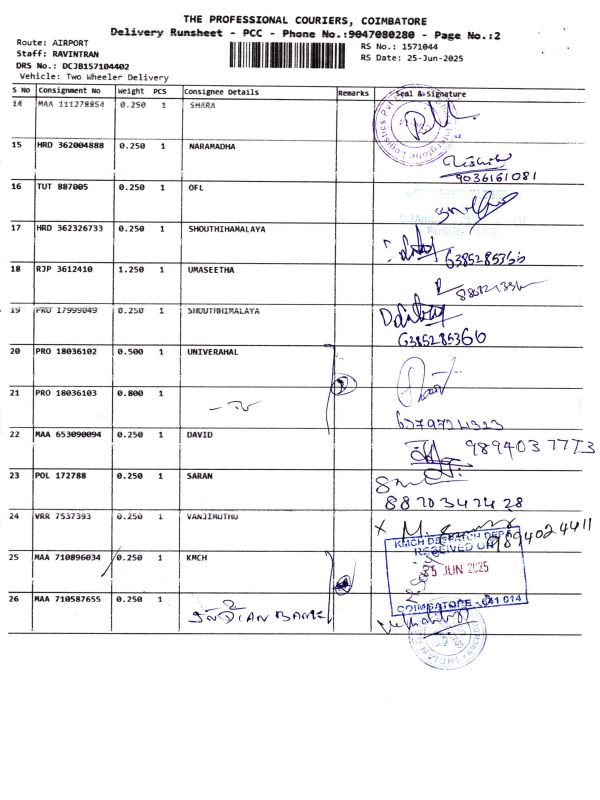 THE PROFESSIONAL COURIERS, COIMBATORE
Delivery Runsheet - PCC - Phone No.:9047080280 - Page No.:2
Route: AIRPORT
Staff: RAVINTRAN
DRS No.: DCJB157104402
Vehicle: Two Wheeler Delivery
RS No.: 1571044
RS Date: 25-Jun-2025
S No Consignment No Weight PCS Consignee Details Remarks Seal & Signature
14 MAA 111278854 0.250 1 SHARA
15 HRD 362004888 0.250 1 NARAMADHA
9036161081
16 TUT 887005 0.250 1 OFL
17 HRD 362326733 0.250 1 SHOUTHIHAMALAYA
6385285366
18 RJP 3612410 1.250 1 UMASEETHA
19 PRO 17999049 0.250 1 SHOUTHHIMALAYA
6385285366
20 PRO 18036102 0.500 1 UNIVERAHAL
21 PRO 18036103 0.800 1
22 MAA 653090094 0.250 1 DAVID
9894037773
23 POL 172788 0.250 1 SARAN
8870347428
24 VRR 7537393 0.250 1 VANJIMUTHU
9894024411
25 MAA 710896034 0.250 1 KMCH
KMCH DESPATCH DEPT
RECEIVED ON
25 JUN 2025
COIMBATORE - 641 014
26 MAA 710587655 0.250 1 INDIAN BANK